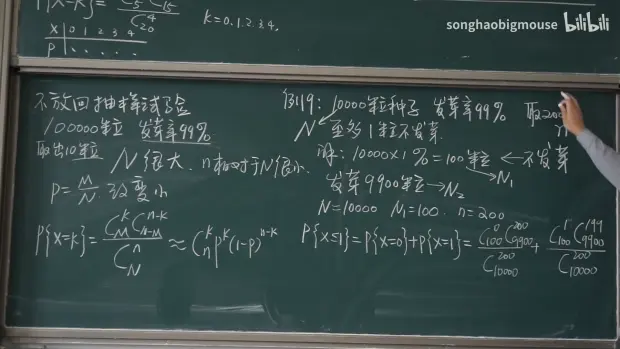 songhaobigmouse bilibili
K=0.1.2.3.4.
X 0 1 2 3 4
P
不放回抽样试验
100000粒 发芽率99%
取出10粒 N很大、n相对于N很小、
P=M/N 改变小
P{X=k}=C_M^k C_{N-M}^{n-k}/C_N^n ≈ C_n^k p^k (1-p)^{n-k}
例19: 10000粒种子 发芽率99% 取200
N 至多1粒不发芽 n
解: 10000×1%=100粒 ← 不发芽
N₁
发芽9900粒→N₂
N=10000 N₁=100. n=200
P{X≤1}=P{X=0}+P{X=1}=C_100^0 C_9900^200/C_10000^200+C_100^1 C_9900^199/C_10000^200